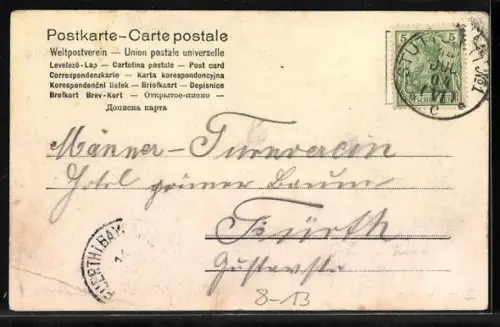 Postkarte – Carte postale
Weltpostverein — Union postale universelle
Levelező-Lap — Cartolina postale — Post card
Correspondenzkarte — Karta korespondencyjna
Korespondenční lístek — Briefkaart — Dopisnice
Brefkort Brev-Kort — Открытое письмо —
Дописна карта
5 5
STUT
JUL
Männer-Turnverein
Hotel grüner Baum
Fürth
Gustavstr
FUERTH I.BAY
8-13